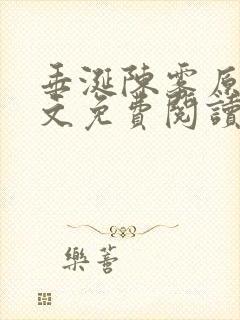 垂涎陳霧原
文免費閱讀
樂薏